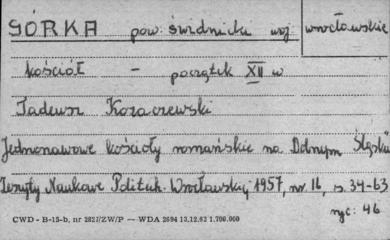 GÓRKA pow. świdnicki woj. wrocławskie
kościół - początek XII w
Tadeusz Kozaczewski
Jednonawowe kościoły romańskie na Dolnym Śląsku
Zeszyty Naukowe Politech. Wrocławskiej 1957, nr 16, s. 34-63
ryc: 46
CWD - B-15-b, nr 2827/ZW/P — WDA 2694 13.12.62 1.700.000